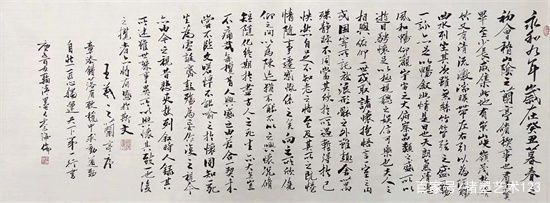 永和九年歲在癸丑暮春
初會稽山陰之蘭亭脩禊事也羣賢
畢至少長咸集此地有崇山峻領茂林脩
又有清流激湍映帶左右引以為流觴
曲水列坐其次雖無絲竹管弦之盛一觴
一詠亦足以暢敘幽情是日也天朗氣清惠
風和暢仰觀宇宙之大俯察品類之盛所以
遊目騁懷足以極視聽之娛信可樂也夫人之
相與俯仰一世或取諸懷抱悟言一室之內
或因寄所託放浪形骸之外雖趣舍萬
殊靜躁不同當其欣於所遇暫得於己
快然自足不知老之將至及其所之既惓
情隨事遷感慨係之矣向之所欣俛
仰之間以為陳迹猶不能不以之興懷況脩
短隨化終期於盡古人云死生亦大矣豈
不痛哉每攬昔人興感之由若合一契未
嘗不臨文嗟悼不能喻之於懷固知一死
生為虛誕齊彭殤為妄作後之視今
亦由今之視昔悲夫故列敘時人錄其
所述雖世殊事異所以興懷其致一也後
之攬者亦將有感於斯文
王羲之蘭亭序
天下第一行書
百家号/诸慰艺术123